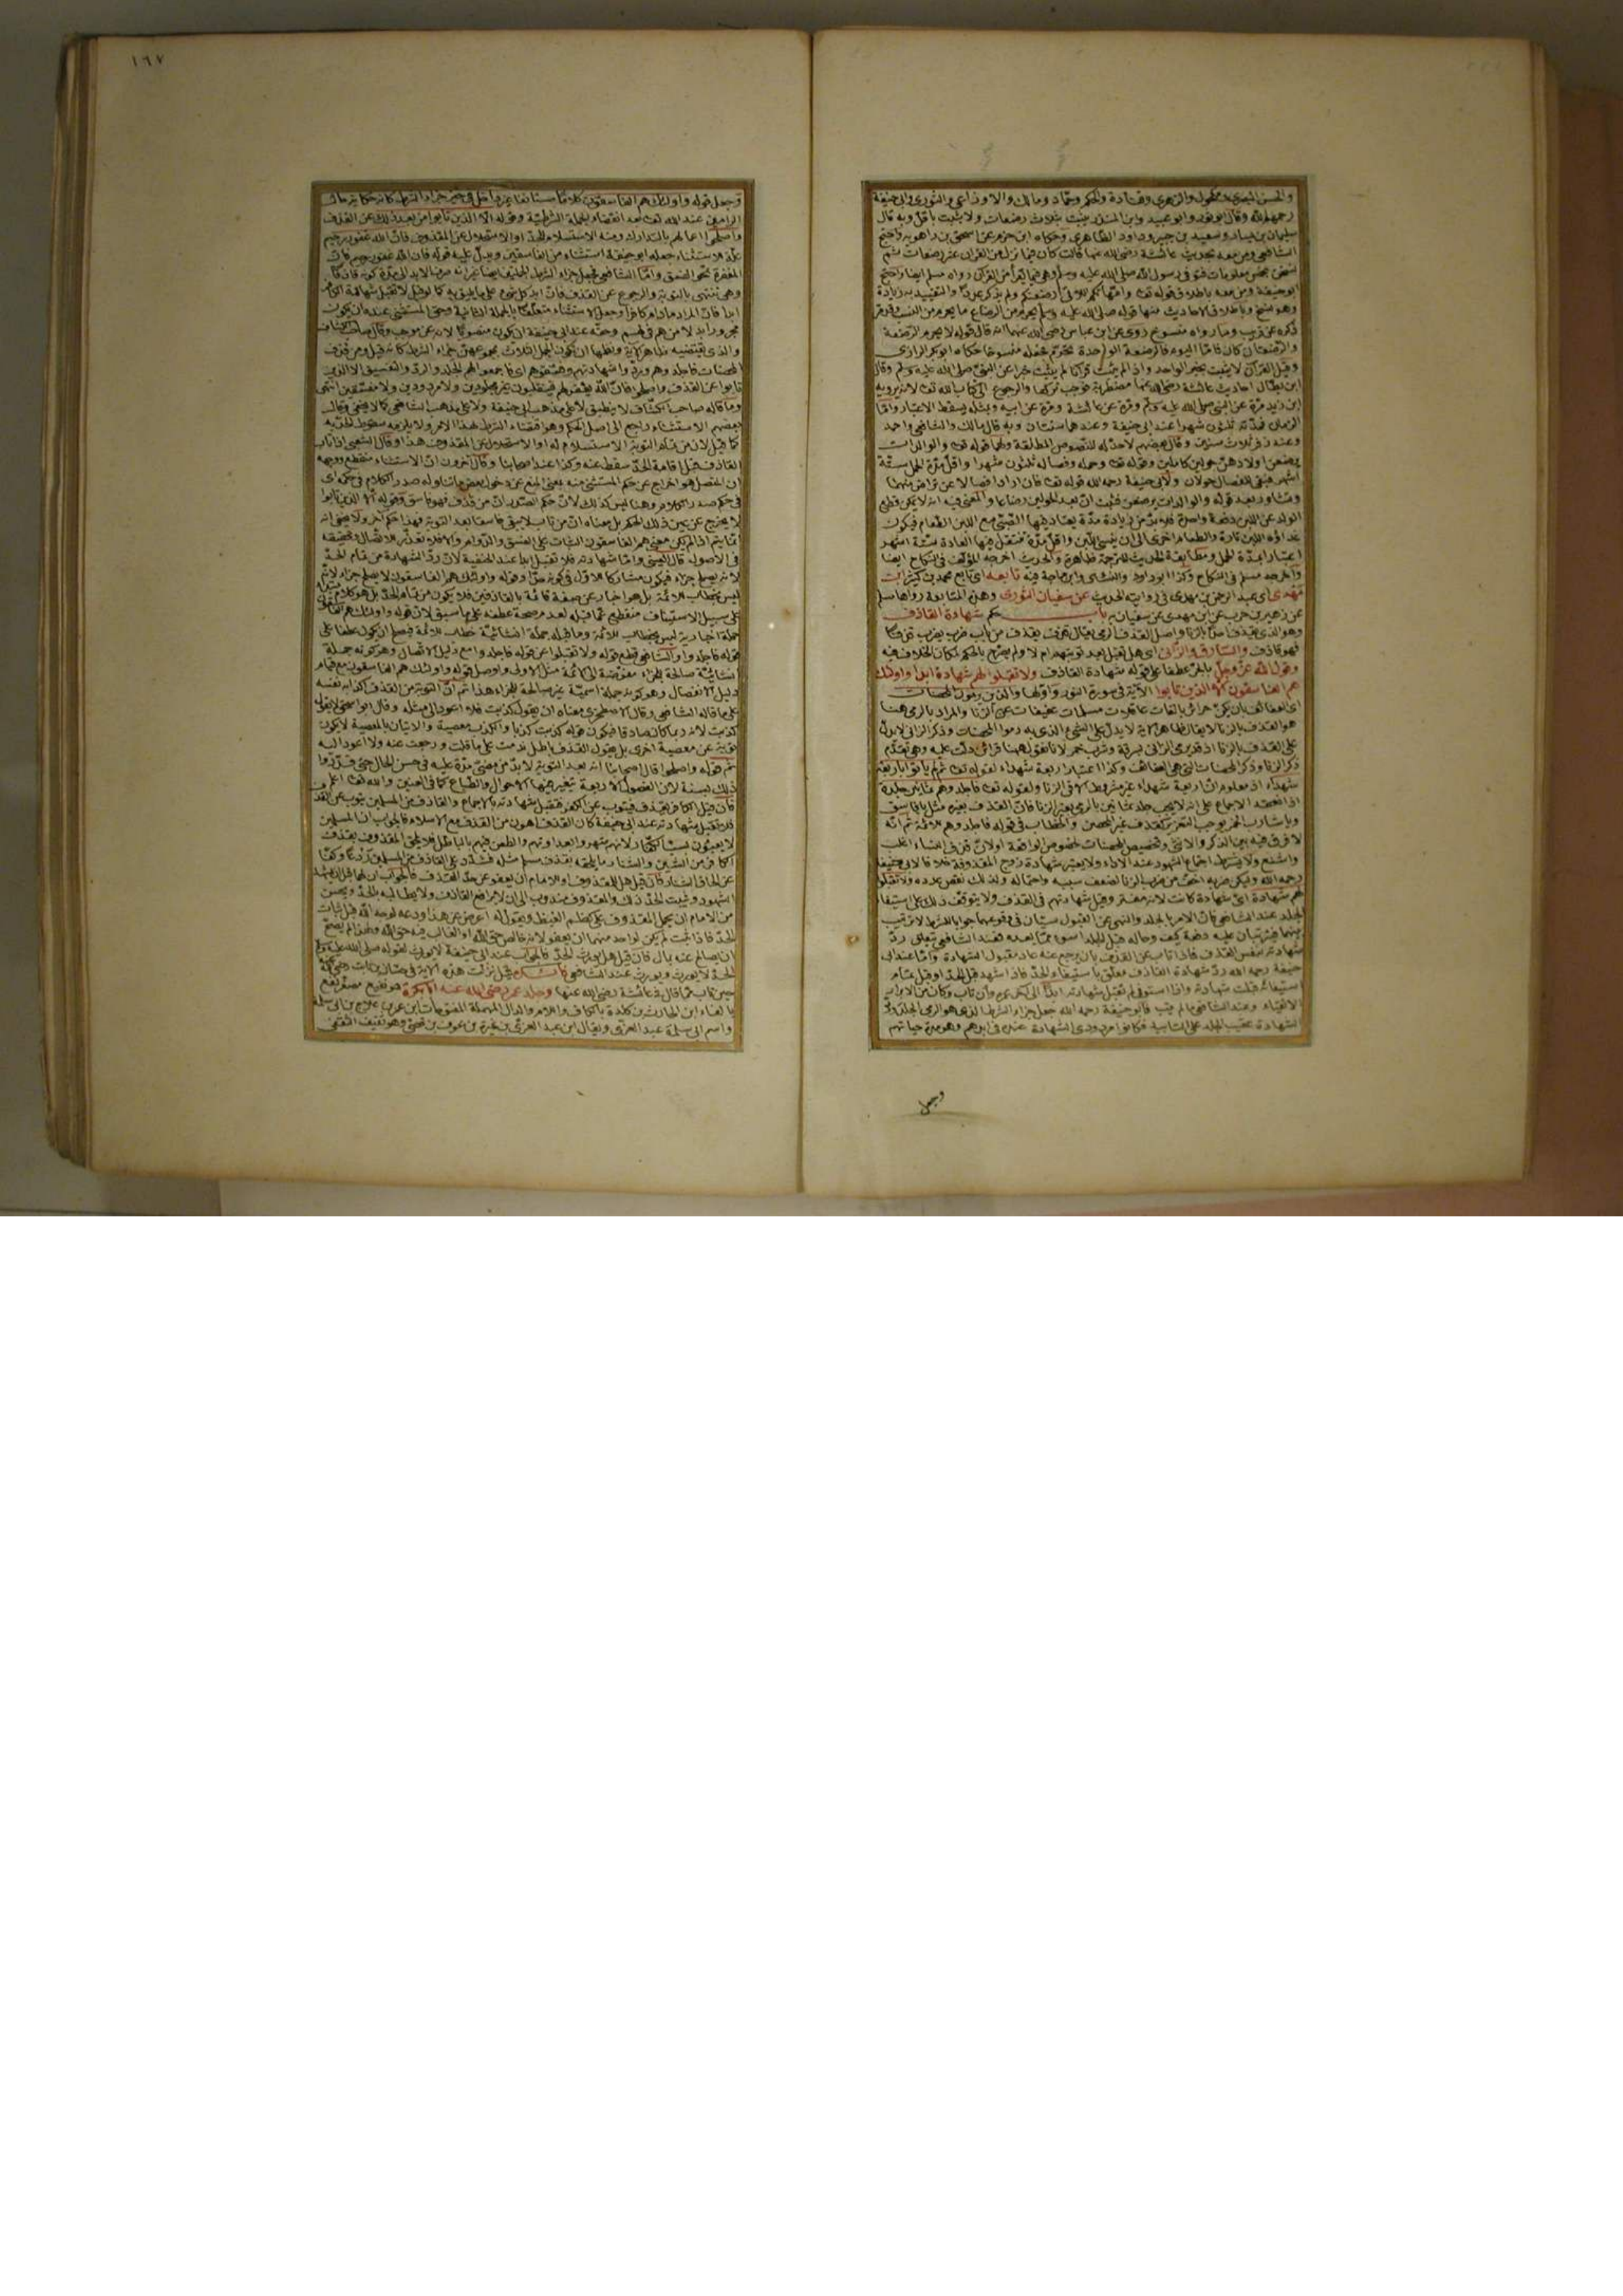 ١٦٧
والحسن البصري ومكحول والزهري وقتادة والحكم وحماد ومالك والاوزاعي والثوري وابي حنيفة
رحمهم الله وقال ابو ثور وابو عبيد وابن المنذر يثبت بثلاث رضعات ولا يثبت باقل وبه قال
سليمان بن يسار وسعيد بن جبير وداود الظاهري وحكاه ابن حزم عن اسحق بن راهويه واحتج
الشافعي ومن معه بحديث عائشة رضي الله عنها قالت كان فيما نزل من القران عشر رضعات ثم
نسخن بخمس معلومات فتوفي رسول الله صلى الله عليه وسلم وهي فيما يقرأ من القرآن رواه مسلم ايضا واحتج
ابو حنيفة ومن معه باطلاق قوله تعالى وامهاتكم اللاتي ارضعنكم ولم يذكر عددا والتقييد به زيادة
وهو نسخ وباطلاق الاحاديث منها قوله صلى الله عليه وسلم يحرم من الرضاع ما يحرم من النسب وقد مر
ذكره عن قريب وما رواه منسوخ روي عن ابن عباس رضي الله عنهما انه قال قوله لا يحرم الرضعة
والرضعتان كان فاما اليوم فالرضعة الواحدة تحرم فجعله منسوخا حكاه ابو بكر الرازي
وقيل القرآن لا يثبت بخبر الواحد واذا لم يثبت قرآنا لم يثبت خبرا عن النبي صلى الله عليه وسلم وقال
ابن بطال احاديث عائشة رضي الله عنها مضطربة فوجب تركها والرجوع الى كتاب الله تعالى لانه يرويه
ابن زيد مرة عن النبي صلى الله عليه وسلم ومرة عن عائشة ومرة عن ابيه وبمثله يسقط الاعتبار واما
الزمان فمدته ثلثون شهرا عند ابي حنيفة وعندهما سنتان وبه قال مالك والشافعي واحمد
وعند زفر ثلاث سنين وقال بعضهم لا حد له للنصوص المطلقة ولهما قوله تعالى والوالدات
يرضعن اولادهن حولين كاملين وقوله تعالى وحمله وفصاله ثلثون شهرا واقل مدة الحمل ستة
اشهر فبقي للفصال حولان ولابي حنيفة رحمه الله قوله تعالى فان ارادا فصالا عن تراض منهما
وتشاور بعد قوله والوالدات يرضعن فثبت ان بعد الحولين رضاعا والمعنى فيه انه لا يمكن قطع
الولد عن اللبن دفعة واحدة فلا بد من زيادة مدة يعتاد فيها الصبي مع اللبن الطعام فيكون
غذاؤه اللبن تارة والطعام اخرى الى ان ينسى اللبن واقل مدة تنتقل فيها العادة ستة اشهر
اعتبارا بمدة الحمل ومطابقة الحديث للترجمة ظاهرة والحديث اخرجه المؤلف في النكاح ايضا
واخرجه مسلم في النكاح وكذا ابو داود والنسائي وابن ماجة فيه تابعه اي تابع محمد بن كثير ابن
مهدي اي عبد الرحمن بن مهدي في روايته الحديث عن سفيان الثوري وهذه المتابعة رواها مسلم
عن زهير بن حرب عن ابن مهدي عن سفيان به باب حكم شهادة القاذف
وهو الذي يقذف احدا بالزنا واصل القذف الرمي يقال قذف يقذف من باب ضرب يضرب قذفا
فهو قاذف والسارق والزاني اي هل تقبل بعد توبتهم ام لا ولم يصرح بالحكم لمكان الخلاف فيه
وقول الله عز وجل بالجر عطفا على قوله شهادة القاذف ولا تقبلوا لهم شهادة ابدا واولئك
هم الفاسقون الا الذين تابوا الآية في سورة النور واولها والذين يرمون المحصنات
اي العفائف بان يكن حرائر بالغات عاقلات مسلمات عفيفات عن الزنا والمراد بالرمي هنا
هو القذف بالزنا لا يقال ظاهر الآية لا يدل على الشيء الذي به رموا المحصنات وذكر الرامي لا يدل
على القذف بالزنا اذ قد يرمى الزاني بسرقة وشرب خمر لانا نقول ههنا قرائن دلت عليه وهو تقدم
ذكر الزنا وذكر المحصنات التي هي العفائف وكذا اعتبار اربعة شهداء لقوله تعالى ثم لم يأتوا باربعة
شهداء اذ معلوم ان اربعة شهداء غير مشروطة الا في الزنا ولقوله تعالى فاجلدوهم ثمانين جلدة
اذ انعقد الاجماع على انه لا يجب جلد ثمانين بالرمي بغير الزنا فان القذف بغيره مثل يا فاسق
ويا شارب الخمر يوجب التعزير كقذف غير المحصن والخطاب في قوله فاجلدوهم للائمة ثم انه
لا فرق فيه بين الذكر والانثى وتخصيص المحصنات لخصوص الواقعة اولان قذف النساء اغلب
واشنع ولا يشترط اجتماع الشهود عند الاداء ولا يعتبر شهادة زوج المقذوفة خلافا لابي حنيفة
رحمه الله وليكن ضربه اخف من ضرب الزنا لضعف سببه واحتماله ولذلك نقص عدده ولا تقبلوا
لهم شهادة اي شهادة كانت لانه مفتر وقيل شهادتهم في القذف ولا يتوقف ذلك على استيفاء
الجلد عند الشافعي فان الامر بالجلد والنهي عن القبول سيان في وقوعهما جوابا للشرط لا ترتيب
بينهما فيترتبان عليه دفعة كيف وحاله قبل الجلد اسوء مما بعده فعند الشافعي تتعلق رد
شهادته بنفس القذف فاذا تاب عن القذف بان يرجع عنه عاد مقبول الشهادة واما عند ابي
حنيفة رحمه الله رد شهادة القاذف معلق باستيفاء الحد فاذا شهد قبل الحد او قبل تمام
استيفائه قبلت شهادته واذا استوفى لم تقبل شهادته ابدا الى آخر عمره وان تاب وكان من الابرار
الاتقياء وعند الشافعي ما لم يتب فابو حنيفة رحمه الله جعل جزاء الشرط الذي هو الرمي الجلد ورد
الشهادة عقيب الجلد على التأبيد فكانوا مردودي الشهادة عنده في ابدهم وهو مدة حياتهم
وجعل
وجعل قوله واولئك هم الفاسقون كلاما مستأنفا غير داخل في حيز جزاء الشرط كانه حكاية حال
الرامين عند الله تعالى بعد انقضاء الجملة الشرطية وقوله الا الذين تابوا من بعد ذلك عن القذف
واصلحوا اعمالهم بالتدارك ومنه الاستسلام للحد او الاستحلال عن المقذوف فان الله غفور رحيم
علة الاستثناء جعله ابو حنيفة استثناء من الفاسقين ويدل عليه قوله فان الله غفور رحيم فان
المغفرة تمحو الفسق واما الشافعي فجعل جزاء الشرط الجملتين ايضا غير انه صرف الابد الى مدة كونه قاذفا
وهي تنتهي بالتوبة والرجوع عن القذف فان ابد كل شيء على ما يليق به كما لو قيل لا تقبل شهادة الكافر
ابدا فان المراد ما دام كافرا وجعل الاستثناء متعلقا بالجملة الثانية وحق المستثنى عنده ان يكون
مجرورا بدلا من هم في لهم وحقه عند ابي حنيفة ان يكون منصوبا لانه عن موجب وقال صاحب الكشاف
والذي يقتضيه ظاهر الآية ونظمها ان يكون الجمل الثلاث بمجموعهن جزاء الشرط كانه قيل ومن قذف
المحصنات فاجلدوهم وردوا شهادتهم وفسقوهم اي فاجمعوا لهم الجلد والرد والتفسيق الا الذين
تابوا عن القذف واصلحوا فان الله يغفر لهم فينقلبون غير مجلودين ولا مردودين ولا مفسقين انتهى
وما قاله صاحب الكشاف لا ينطبق لا على مذهب ابي حنيفة ولا على مذهب الشافعي كما لا يخفى وقال
بعضهم الاستثناء راجع الى اصل الحكم وهو اقتضاء الشرط لهذا الامر ولا يلزمه سقوط الحد به
كما قيل لان من تمام التوبة الاستسلام له او الاستحلال عن المقذوف هذا وقال الشعبي اذا تاب
القاذف قبل اقامة الحد سقط عنه وكذا عند اصحابنا وقال آخرون ان الاستثناء منقطع ووجهه
ان المتصل هو اخراج عن حكم المستثنى منه بمعنى المنع عن دخول بعض ما تناوله صدر الكلام في حكمه اي
في حكم صدر الكلام وهنا ليس كذلك لان حكم الصدر ان من قذف فهو فاسق وقوله الا الذين تابوا
لا يخرج عن عين ذلك الحكم بل معناه ان من تاب لا يبقى فاسقا بعد التوبة فهذا حكم آخر ولا يخفى انه
انما يتم اذا لم يكن معنى هم الفاسقون الثبات على الفسق والدوام والا فلا تعذر الاتصال وتحقيقه
في الاصول قال العيني واما شهادته فلا تقبل ابدا عند الحنفية لان رد الشهادة من تمام الحد
لانه يصلح جزاء فيكون مشاركا للاول في كونه حدا وقوله واولئك هم الفاسقون لا يصلح جزاء لانه
ليس بخطاب للائمة بل هو اخبار عن صفة قائمة بالقاذفين فلا يكون من تمام الحد بل هو كلام مبتدأ
على سبيل الاستيناف منقطع عما قبله لعدم صحة عطفه على ما سبق لان قوله واولئك هم الفاسقون
جملة اخبارية ليس بخطاب للائمة وما قبله جملة انشائية خطاب للائمة فيصلح ان يكون عطفا على
قوله فاجلدوا والشافعي قطع قوله ولا تقبلوا عن قوله فاجلدوا مع دليل الاتصال وهو كونه جملة
انشائية صالحة للجزاء مفوضة الى الائمة مثل الاولى واوصل قوله واولئك هم الفاسقون مع قيام
دليل الانفصال وهو كونه جملة اسمية غير صالحة للجزاء هذا ثم ان التوبة من القذف اكذابه نفسه
على ما قاله الشافعي وقال الاصطخري معناه ان يقول كذبت فلا اعود الى مثله وقال ابو اسحق لا يقول
كذبت لانه ربما كان صادقا فيكون قوله كذبت كذبا والكذب معصية والاتيان بالمعصية لا يكون
توبة عن معصية اخرى بل يقول القذف باطل ندمت على ما قلت ورجعت عنه ولا اعود اليه
ثم قوله واصلحوا قال اصحابنا انه بعد التوبة لا بد من مضي مدة عليه في حسن الحال حتى قدروا
ذلك بسنة لان الفصول الاربعة يتغير فيها الاحوال والطباع كما في العنين والله تعالى اعلم
فان قيل الكافر يقذف فيتوب عن الكفر فتقبل شهادته بالاجماع والقاذف من المسلمين يتوب عن القذف
فلا تقبل شهادته عند ابي حنيفة كان القذف اهون من القذف مع الاسلام فالجواب ان المسلمين
لا يعبؤن بسب الكفار لانهم شهروا بعداوتهم والطعن فيهم بالباطل فلا يلحق المقذوف بقذف
الكافر من الشين والشنار ما يلحقه بقذف مسلم مثله فشدد على القاذف من المسلمين ردعا وكفا
عن الحاق الشنار فان قيل هل للمقذوف او للامام ان يعفو عن حد القذف فالجواب ان لهما قبل ان يشهد
الشهود ويثبت الحد ذلك والمقذوف مندوب الى ان لا يرافع القاذف ولا يطالبه بالحد ويحسن
من الامام ان يحمل المقذوف على كظم الغيظ ويقول له اعرض عن هذا ودعه لوجه الله قبل ثبات
الحد فاذا ثبت لم يكن لواحد منهما ان يعفو لانه خالص حق الله او الغالب فيه حق الله ولهذا لم يصح
ان يصالح عنه بمال فان قيل هل يورث الحد فالجواب عند ابي حنيفة لا يورث لقوله صلى الله عليه وسلم
الحد لا يورث ويورث عند الشافعي قيل نزلت هذه الآية في حسان بن ثابت رضي الله عنه
حين تاب مما قال في عائشة رضي الله عنها وجلد عمر رضي الله عنه ابا بكرة هو نفيع مصغر نفع
بالفاء ابن الحارث بن كلدة بالكاف واللام والدال المهملة المفتوحات ابن عمرو بن علاج بن ابي سلمة
واسم ابي سلمة عبد العزى ويقال ابن عبد العزى بن غيرة بن عوف بن قسي وهو ثقيف الثقفي